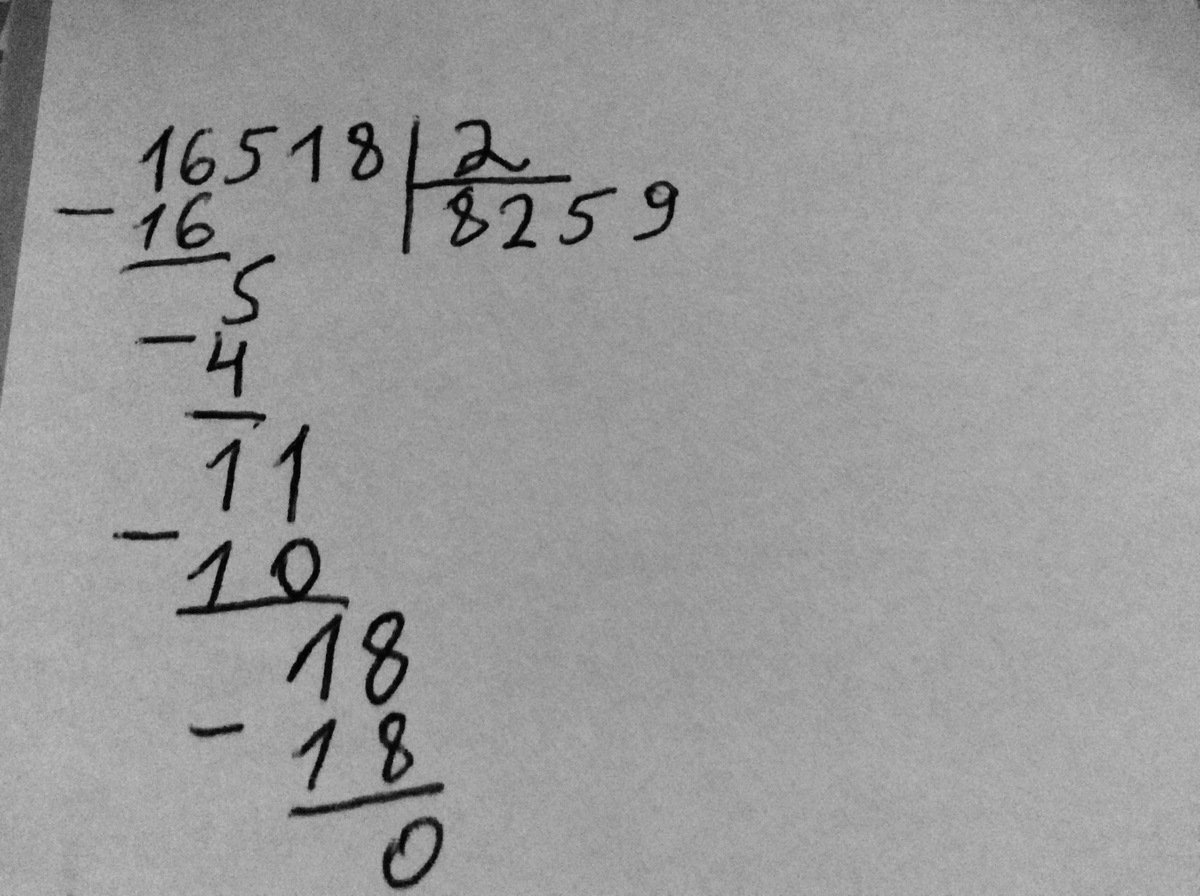 16518 2
- 16 8259
5
- 4
11
- 10
18
- 18
0